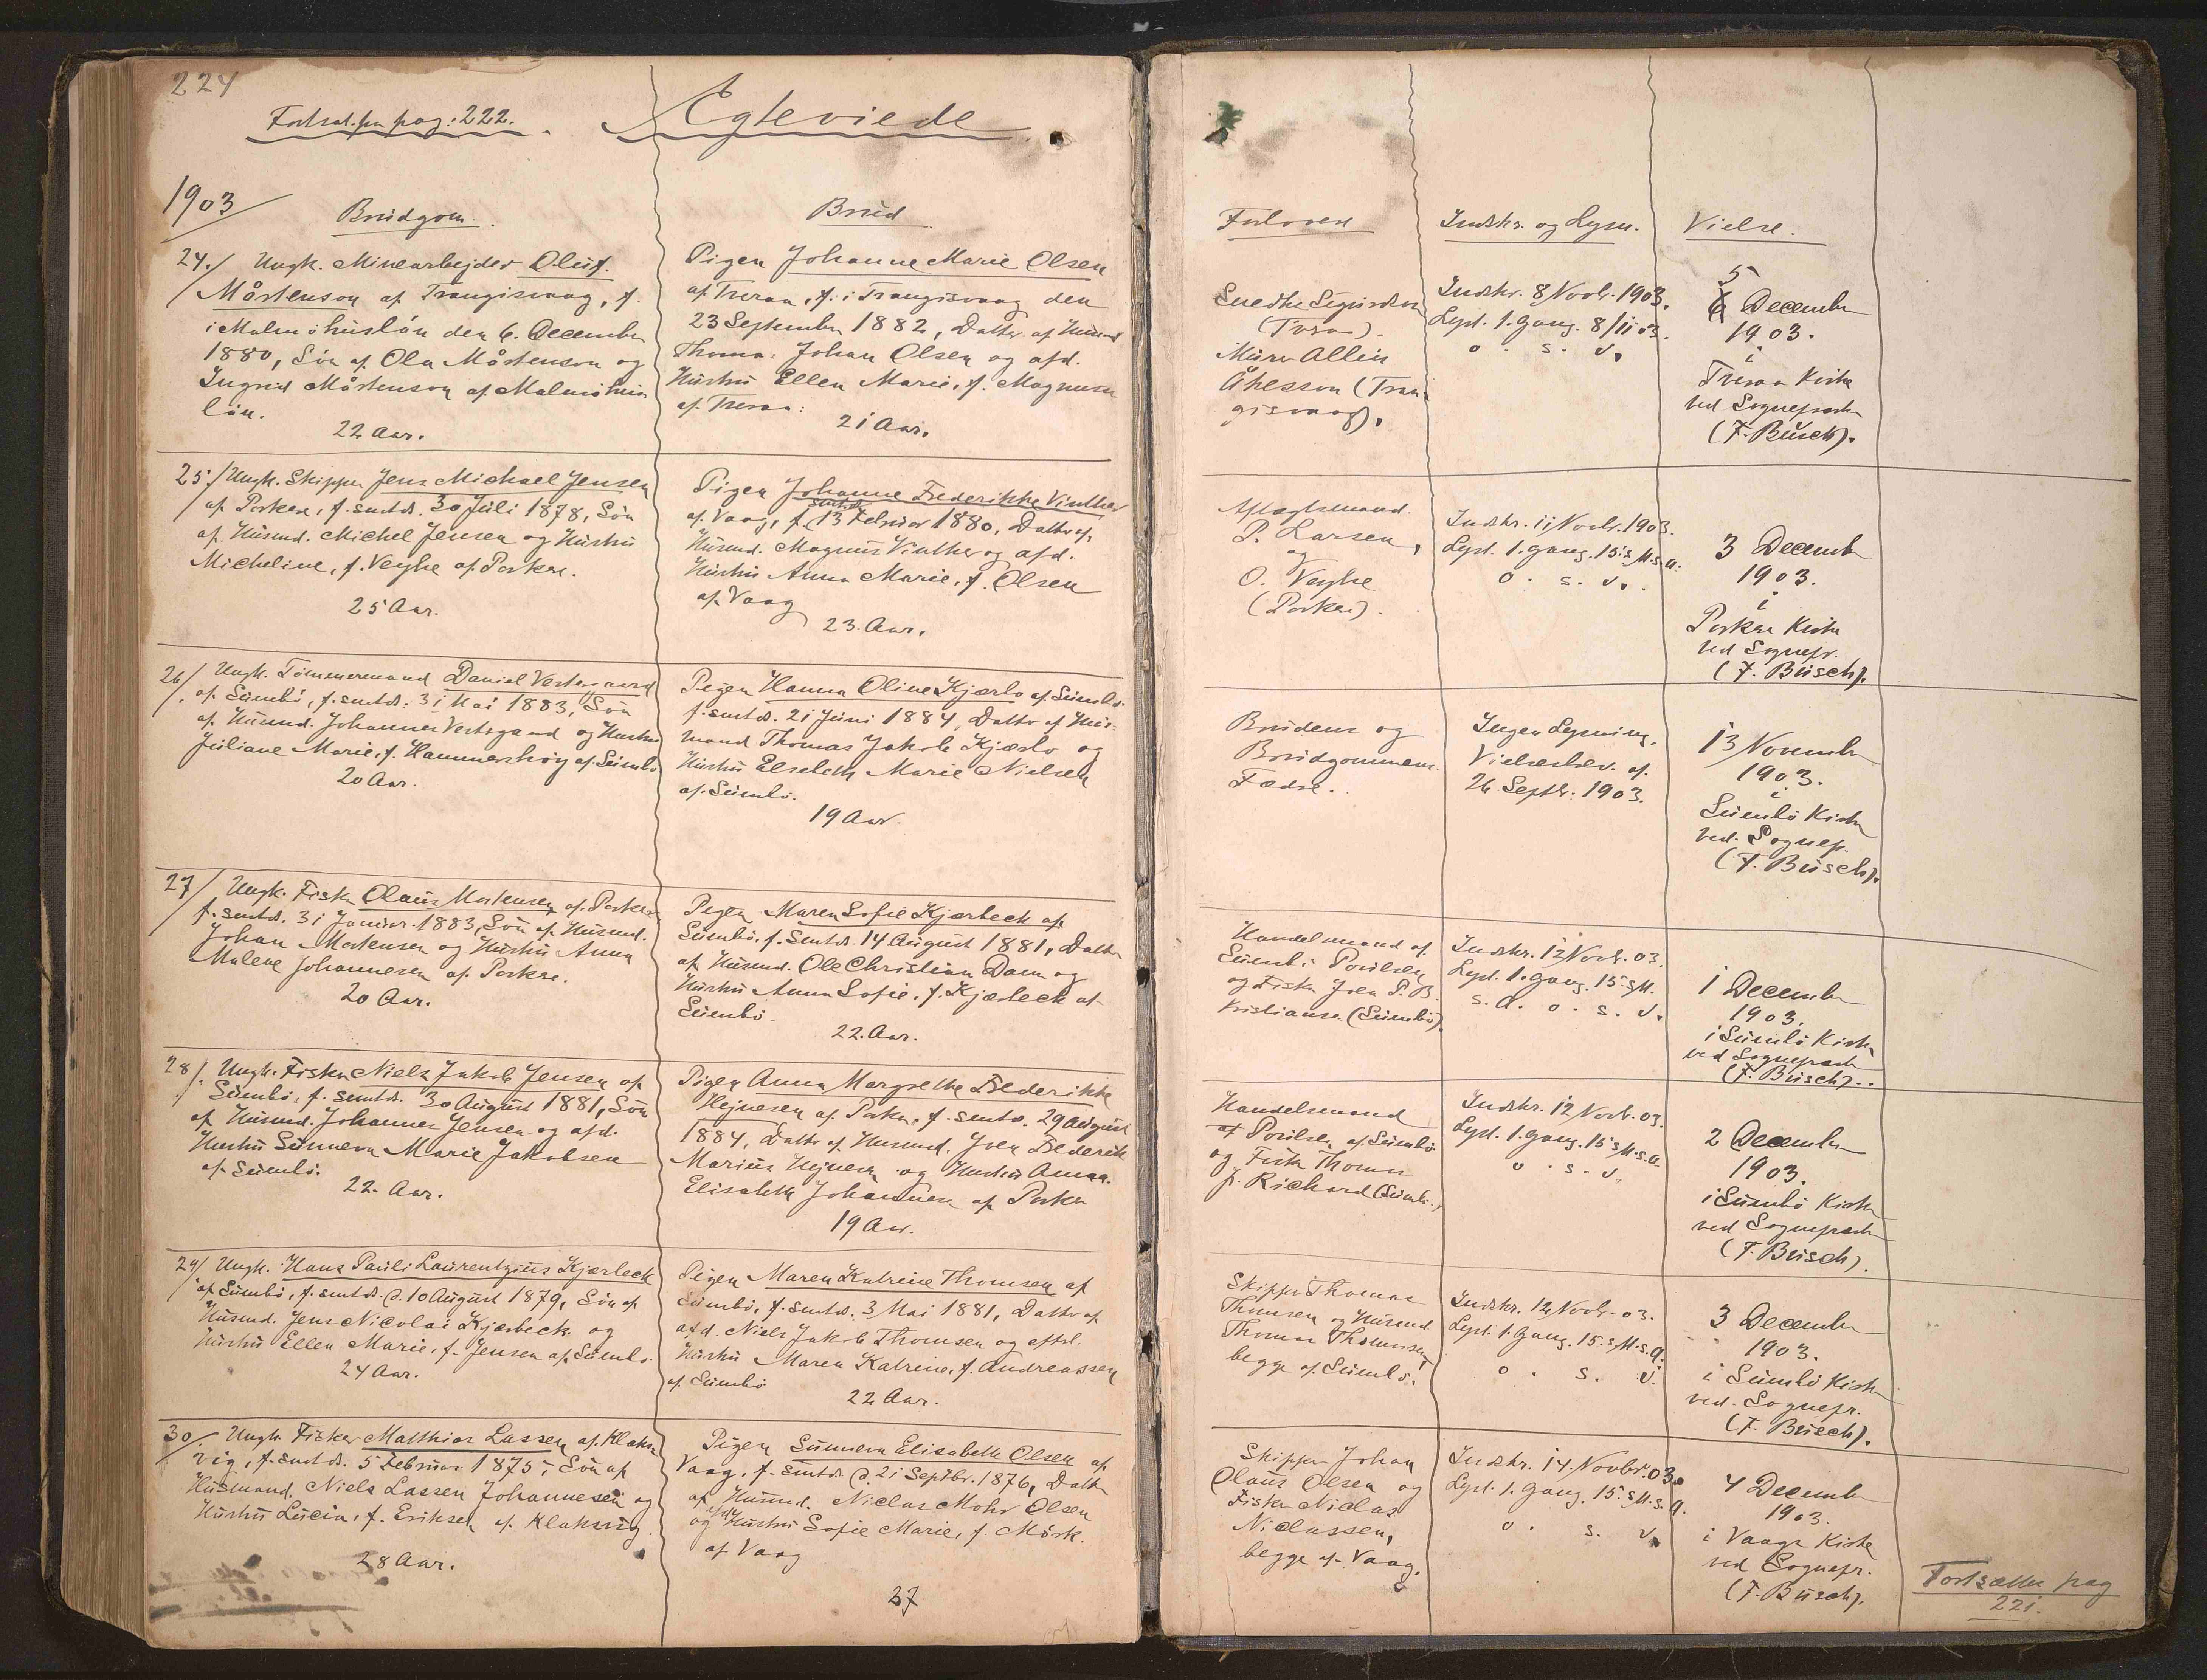 224
Fortsat. fra pag: 222.
Ægteviede
1903
Brudgom.
Brud
24./ Ungk. Minearbejder Oluf
Mårtenson af Trangisvaag, f.
i Malmöhuslän den 6. December
1880, Søn af Ola Mårtenson og
Ingrid Mårtenson af Malmöhus
län.
22 Aar.
Pigen Johanne Marie Olsen
af Tveraa, f. i Trangisvaag den
23 September 1882, Datter af Husmd
Thoma: Johan Olsen og afd.
Hustru Ellen Marie, f. Magnusen
af Tveraa:
21 Aar.
25./ Ungk. Skipper Jens Michael Jensen
af Porkere, f. smstds. 30 Juli 1878, Søn
af Husmd. Michel Jensen og Hustru
Micheline, f. Veyhe af Porkere.
25 Aar.
Pigen Johanne Frederikke Vinther
af Vaag, f. smstds 13 Februar 1880, Datter af
Husmd. Magnus Vinther og afd.
Hustru Anna Marie, f. Olsen
af Vaag
23. Aar.
26/. Ungk. Tømmermand Daniel Vestergaard
af Sumbø, f. smstds. 31 Mai 1883, Søn
af Husmd. Johannes Vestergaard og Hustru
Juliane Marie, f. Hammershøy af Sumbø
20 Aar.
Pigen Hanna Oline Kjærbo af Sumbø
f. smstds. 21 Juni 1884, Datter af Hus-
mand Thomas Jakob Kjærbo og
Hustru Elsebeth Marie Nielsen
af Sumbø.
19 Aar.
27/ Ungk. Fisker Olaus Mortensen af Porkere
f. smstds. 31 Januar 1883, Søn af Husmd.
Johan Mortensen og Hustru Anna
Malene Johannesen af Porkere.
20 Aar.
Pigen Maren Sofie Kjærbeck af
Sumbø, f. smstds. 14 August 1881, Datter
af Husmd. Ole Christian Dam og
Hustru Anna Sofie, f. Kjærbeck af
Sumbø
22. Aar.
28/. Ungk. Fisker Niels Jakob Jensen af
Sumbø, f. smstds. 30 August 1881, Søn
af Husmd. Johannes Jensen og afd.
Hustru Sunneva Marie Jakobsen
af Sumbø.
22. Aar.
Pigen Anna Margrethe Frederikke
Hejnesen af Porkere, f. smstds. 29 August
1884, Datter af Husmd. Jven Frederik
Marius Hejnesen og Hustru Anna
Elisabeth Johannesen af Porkere
19 Aar.
29/ Ungk. Hans Pauli Laurentzius Kjærbeck
af Sumbø, f. smstds. d. 10 August 1879, Søn af
Husmd. Jens Nicolai Kjærbeck og
Hustru Ellen Marie, f. Jensen af Sumbø
24 Aar.
Pigen Maren Katrine Thomsen af
Sumbø, f. smstds. 3 Mai 1881, Datter af
afd. Niels Jakob Thomsen og eftrl.
Hustru Maren Katrine, f. Andreassen
af Sumbø
22 Aar.
30/. Ungk. Fisker Matthias Lassen af Klaks
vig, f. smstds. 5 Februar 1875, Søn af
Husmand. Niels Lassen Johannesen og
Hustru Lucia, f. Eriksen af Klaksvig.
28 Aar.
Pigen Sunneva Elisabeth Olsen af
Vaag, f. smstds d. 21 Septbr. 1876, Datter
af Husmd. Niclas Mohr Olsen
og afd Hustru Sofie Marie, f. Mørk.
af Vaag
27
Forlovere
Indskr. og Lysn.
Vielse.
Snedker Sigurdson
(Tveraa).
Murer Allin
Åkesson (Tran
gisvaag).
Indskr. 8 Novb. 1903.
Lyst. 1. Gang. 8/11 03.
o. s. v.
5
6 December
1903.
i
Tveraa Kirke
ved Sognepræsten
(F. Busch).
Aftægtsmand.
P. Larsen,
og
O. Veyhe
(Porkere).
Indskr. 11 Novbr. 1903.
Lyst. 1. Gang. 15. s. M. s. A.
o. s. v.
3 Decemb
1903.
i
Porkere Kirke
ved Sognepr.
(F. Busch).
Brudens og
Brudgommens
Fædre.
Ingen Lysning.
Vielsesbrev. af.
26. Septb. 1903.
13 November
1903.
i
Sumbø Kirke
ved. Sognep.
(F. Busch).
Handelsmand af.
Sumbø Poulsen
og Fisker Joen P. B.
Kristianse. (Sumbø).
Indskr. 12 Novb. 03.
Lyst. 1. Gang. 15. s. M.
s. A. o. s. v.
1 December
1903.
i Sumbø Kirke
ved Sognepræsten
(F. Busch).
Handelsmand
af Poulsen af Sumbø
og Fisker Thomas
f. Richard (Sumbø.)
Indskr. 12 Novb. 03.
Lyst. 1. Gang. 15. s. M. s. A.
o. s. v.
2 December
1903.
i Sumbø Kirke
ved Sognepræsten
(F. Busch).
Skipper Thomas
Thomsen og Husmd.
Thomas Thomassen,
begge af Sumbø.
Indskr. 12 Novbr. 03.
Lyst. 1. Gang. 15. s. M. s. A.
o. s. v.
3 December
1903.
i Sumbø Kirke
ved. Sognepr.
(F. Busch).
Skipper Johan
Olaus Olsen og
Fisker Niclas
Niclassen,
begge af Vaag.
Indskr. 14. Novbr. 03.
Lyst. 1. Gang. 15. s. M. s. A.
o. s. v.
4 Decemb
1903.
i Vaags Kirke
ved Sognepr.
(F. Busch).
Fortsættes pag
221.